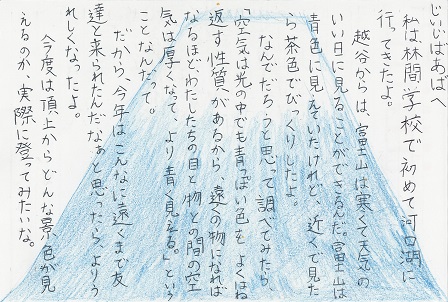 じいじばあばへ
私は林間学校で初めて河口湖に
行ってきたよ。
越谷からは、富士山は寒くて天気の
いい日に見ることができるんだ。富士山は
青色に見えていたけれど、近くで見た
ら茶色でびっくりしたよ。
なんでだろうと思って調べてみたら、
「空気は光の中でも青っぽい色をよくはね
返す性質があるから、遠くの物になれば
なるほどわたしたちの目と物との間の空
気は厚くなって、より青く見える。」という
ことなんだって。
だから、今年はこんなに遠くまで友
達と来られたんだなぁと思ったら、よりう
れしくなったよ。
今度は頂上からどんな景色が見
えるのか、実際に登ってみたいな。